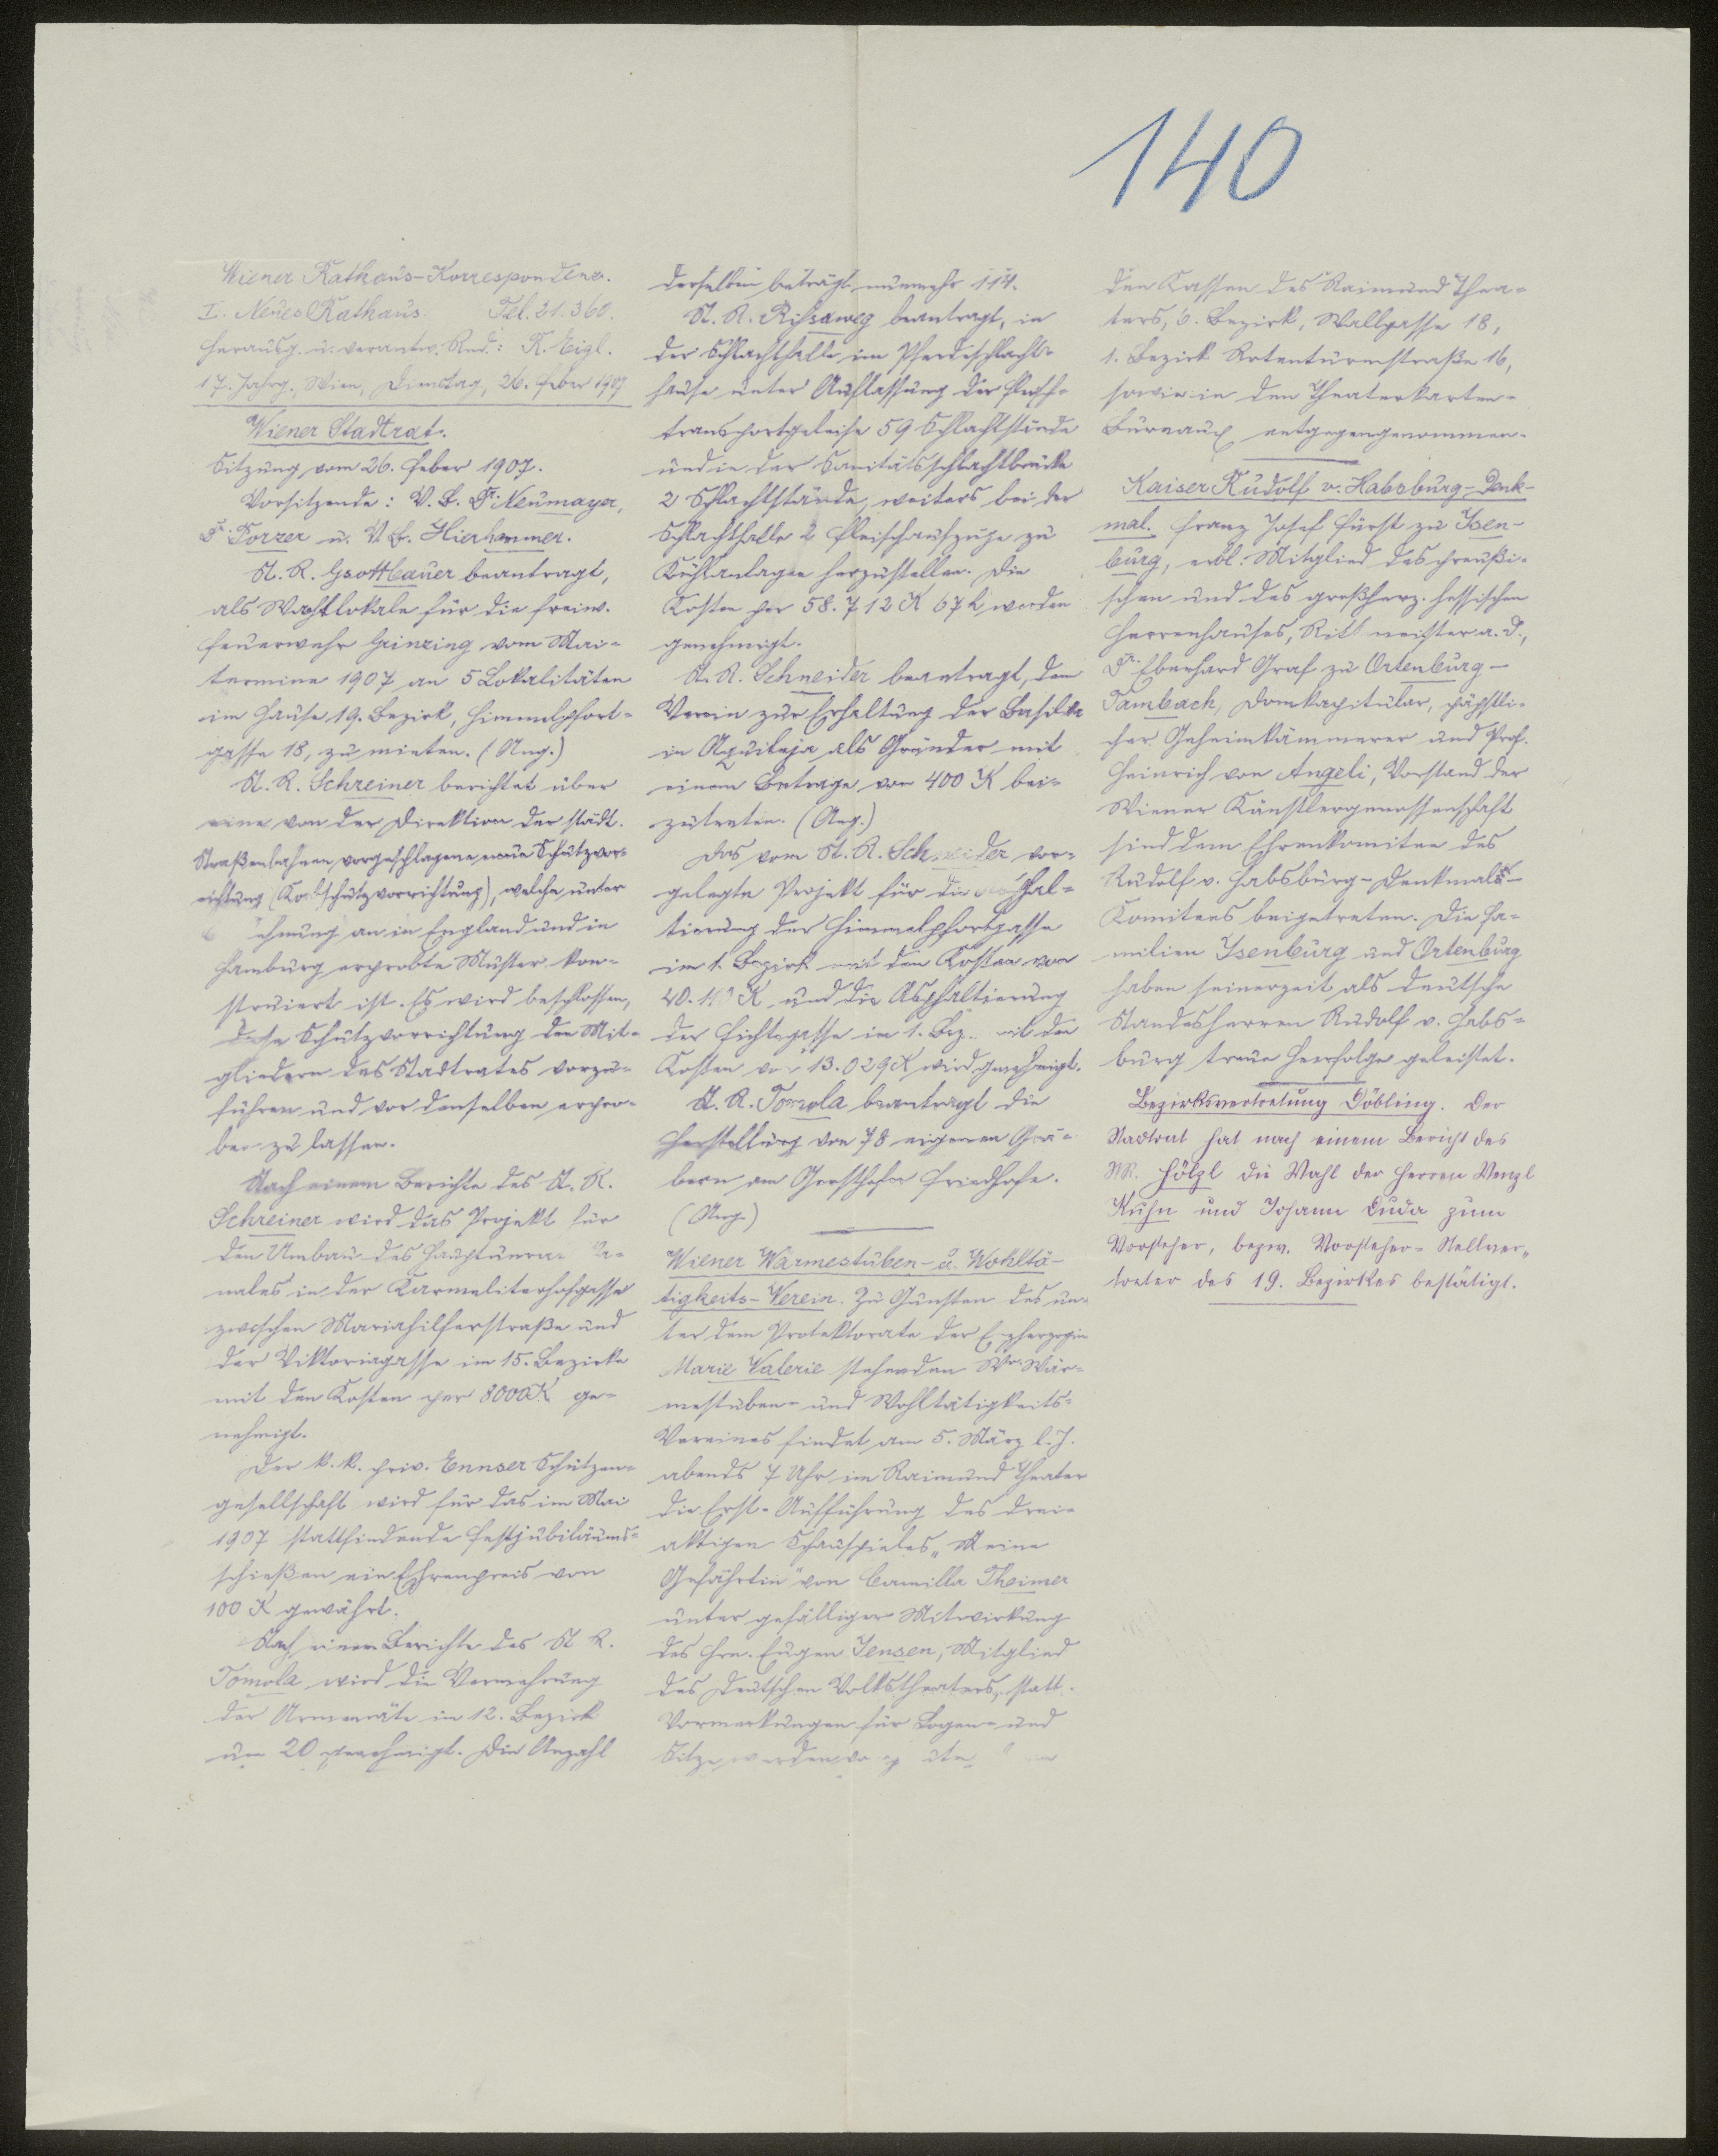 140
Wiener Rathaus-Korrespondenz.
I. Neues Rathaus. Tel. 21.360.
Herausg. u. verantw. Red.: R. Eigl.
17. Jahrg., Wien, Dienstag, 26. Feber 1907
Wiener Stadtrat.
Sitzung vom 26. Feber 1907.
Vorsitzende: V. B. Dr. Neumayer,
Dr. Porzer u. V. B. Hierhammer.
St. R. Gsottbauer beantragt,
als Wachtlokale für die freiw.
Feuerwehr Grinzing vom Mai-
termine 1907 an 5 Lokalitäten
im Hause 19. Bezirk, Himmelpfort-
gasse 18, zu mieten. (Ang.)
St. R. Schreiner berichtet über
eine von der Direktion der städt.
Straßenbahnen vorgeschlagene neue Schutzvor-
richtung (Korbschutzvorrichtung), welche unter
ehnung an in England und in
Hamburg erprobte Muster kon-
struiert ist. Es wird beschlossen,
diese Schutzvorrichtung den Mit-
gliedern des Stadtrates vorzu-
führen und vor denselben erpro-
ben zu lassen.
Nach einem Berichte des St. R.
Schreiner wird das Projekt für
den Umbau des Hauptunrat Ka-
nales in der Karmeliterhofgasse
zwischen Mariahilferstraße und
der Viktoriagasse im 15. Bezirke
mit den Kosten per 8000 K ge-
nehmigt.
Der k. k. priv. Ennser Schützen-
gesellschaft wird für das im Mai
1907 stattfindende Festjubiläums-
schießen ein Ehrenpreis von
100 K gewährt.
Nach einem Berichte des St. R.
Tomola wird die Vermehrung
der Armenräte im 12. Bezirk
um 20 genehmigt. Die Anzahl
derselben beträgt nunmehr 114.
St. R. Rissaweg beantragt, in
der Schlachthalle im Pferdeschlacht-
hause unter Auflassung der Fleisch-
transportgeleise 59 Schlachtstände
und in der Sanitätsschlachtbrücke
2 Schlachtstände, weiters bei der
Schlachthalle 2 Fleischaufzüge zu
Kühlanlagen herzustellen. Die
Kosten per 58.712 K 67 h werden
genehmigt.
St. R. Schneider beantragt, dem
Verein zur Erhaltung der Basilika
in Aquileja als Gründer mit
einem Betrage von 400 K bei-
zutreten. (Ang.)
Das vom St. R. Schneider vor-
gelegte Projekt für die Asphal-
tierung der Himmelpfortgasse
im 1. Bezirk mit den Kosten von
40.110 K und die Asphaltierung
der Fichtegasse im 1. Bez. mit den
Kosten von 13.029 K wird genehmigt.
St. R. Tomola beantragt die
Herstellung von 78 eigenen Grä-
bern am Gersthofer Friedhofe.
(Ang.)
Wiener Wärmestuben- u. Wohltä-
tigkeits-Verein. Zu Gunsten des un-
ter dem Protektorate der Erzherzogin
Marie Valerie stehenden Wr. Wär-
mestuben- und Wohltätigkeits-
Vereines findet am 5. März l. J.
abends 7 Uhr im Raimund Theater
die Erst-Aufführung des drei-
aktigen Schauspieles „Meine
Gefährtin" von Camilla Theimer
unter gefälliger Mitwirkung
des Hrn. Eugen Jensen, Mitglied
des Deutschen Volkstheaters, statt.
Vormerkungen für Logen- und
Sitze werden von
den Kassen des Raimund Thea-
ters, 6. Bezirk, Wallgasse 18,
1. Bezirk Rotenturmstraße 16,
sowie in den Theaterkarten-
Bureaux entgegengenommen.
Kaiser Rudolf v. Habsburg-Denk-
mal. Franz Josef Fürst zu Isen-
burg, erbl. Mitglied des preußi-
schen und des großherz. hessischen
Herrenhauses, Rittmeister a. D.,
Dr. Eberhard Graf zu Ortenburg-
Tambach, Domkapitular, päpstli-
cher Geheimkämmerer und Prof.
Heinrich von Angeli, Vorstand der
Wiener Künstlergenossenschaft
sind dem Ehrenkomitee des
Rudolf v. Habsburg-Denkmal-
Komitees beigetreten. Die Fa-
milien Isenburg und Ortenburg
haben seinerzeit als deutsche
Standesherren Rudolf v. Habs-
burg treue Heerfolge geleistet.
Bezirksvertretung Döbling. Der
Stadtrat hat nach einem Bericht des
StR. Hölzl die Wahl der Herren Wenzl
Kuhn und Johann Duda zum
Vorsteher, bezw. Vorsteher-Stellver-
treter des 19. Bezirkes bestätigt.